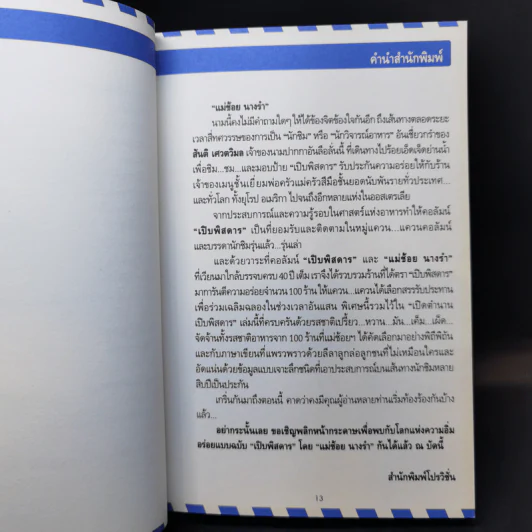 คำนำสำนักพิมพ์
“แม่ช้อย นางรำ”
นามนี้คงไม่มีคำถามใดๆ ให้ได้ข้องจิตข้องใจกันอีก ถึงเส้นทางตลอดระยะ
เวลาสี่ทศวรรษของการเป็น “นักชิม” หรือ “นักวิจารณ์อาหาร” อันเชี่ยวกรำของ
สันติ เศวตวิมล เจ้าของนามปากกาอันลือลั่นนี้ ที่เดินทางไปร้อยเอ็ดเจ็ดย่านน้ำ
เพื่อชิม...ชม...และมอบป้าย “เปิบพิสดาร” รับประกันความอร่อยให้กับร้าน
เจ้าของเมนูชั้นเยี่ยมพ่อครัวแม่ครัวฝีมือชั้นยอดนับพันรายทั่วประเทศ...
และทั่วโลก ทั้งยุโรป อเมริกา ไปจนถึงอีกหลายแห่งในออสเตรเลีย
จากประสบการณ์และความรู้รอบในศาสตร์แห่งอาหารทำให้คอลัมน์
“เปิบพิสดาร” เป็นที่ยอมรับและติดตามในหมู่แควน...แควนคอลัมน์
และบรรดานักชิมรุ่นแล้ว...รุ่นเล่า
และด้วยวาระที่คอลัมน์ “เปิบพิสดาร” และ “แม่ช้อย นางรำ”
ที่เวียนมาใกล้บรรจบครบ 40 ปี เต็ม เราจึงได้รวบรวมร้านที่ได้ตรา “เปิบพิสดาร”
มาการันตีความอร่อยจำนวน 100 ร้าน ให้แควน...แควนได้เลือกสรรรับประทาน
เพื่อร่วมเฉลิมฉลองในช่วงเวลาอันแสน พิเศษนี้รวมไว้ใน “เปิดตำนาน
เปิบพิสดาร” เล่มนี้ที่ครบครันด้วยรสชาติเปรี้ยว...หวาน...มัน...เค็ม...เผ็ด...
จัดจ้านทั้งรสชาติอาหารจาก 100 ร้านที่แม่ช้อยฯ ได้คัดเลือกมาอย่างพิถีพิถัน
และกับภาษาเขียนที่แพรวพราวด้วยลีลาลูกล่อลูกชนที่ไม่เหมือนใครและ
อัดแน่นด้วยข้อมูลแบบเจาะลึกชนิดที่เอาประสบการณ์บนเส้นทางนักชิมหลาย
สิบปีเป็นประกัน
เกริ่นกันมาถึงตอนนี้ คาดว่าคงมีคุณผู้อ่านหลายท่านเริ่มท้องร้องกันบ้าง
แล้ว...
อย่ากระนั้นเลย ขอเชิญพลิกหน้ากระดาษเพื่อพบกับโลกแห่งความอิ่ม
อร่อยแบบฉบับ “เปิบพิสดาร” โดย “แม่ช้อย นางรำ” กันได้แล้ว ณ บัดนี้
สำนักพิมพ์โปรวิชั่น
13